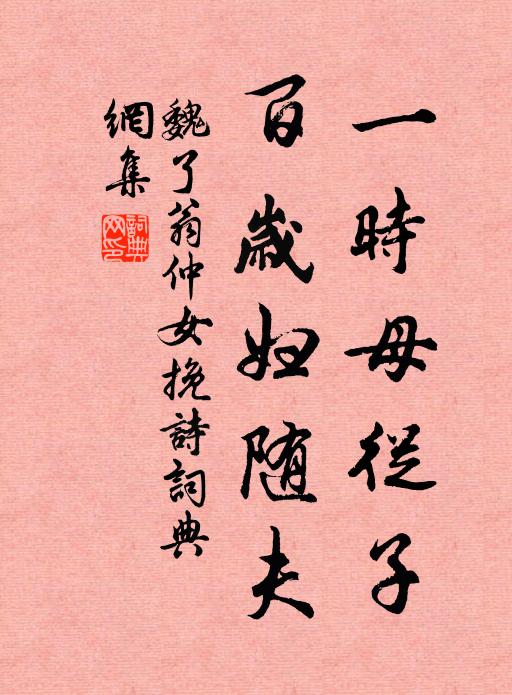 一時母從子
百歲妇随夫
魏了翁仲女挽詩詞典
網集
詞典网印